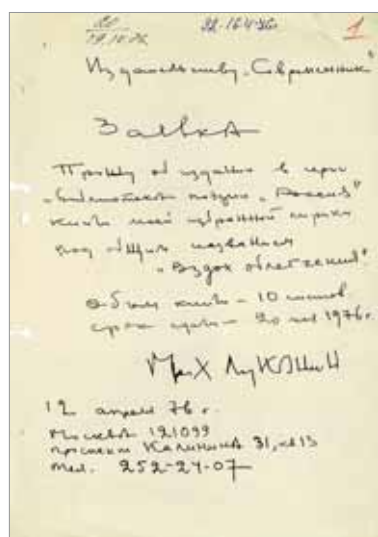 20
19.10.76
32-16.4.76г.
1
Издательству „Современник"
Заявка
Прошу об издании в серии
„Библиотека поэзии „Россия"
книги моей избранной лирики
под общим названием
„Вздох облегчения".
Объем книги – 10 листов
срок сдачи – 20 мая 1976г.
Мих Луконин
12 апреля 76 г.
Москва 121099
проспект Калинина 31, кв 13
тел. 252-24-07